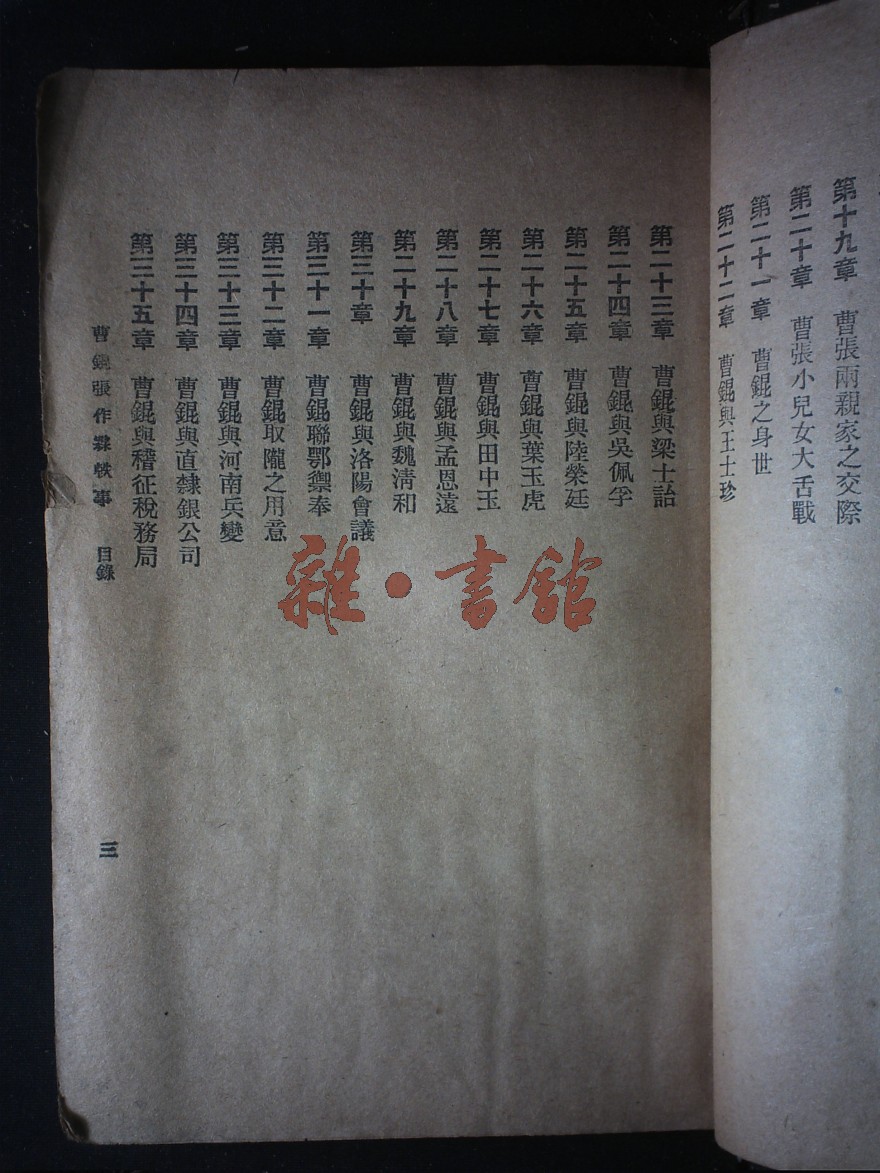 第十九章　曹張兩親家之交際
第二十章　曹張小兒女大舌戰
第二十一章　曹錕之身世
第二十二章　曹錕與王士珍
第二十三章　曹錕與梁士詒
第二十四章　曹錕與吳佩孚
第二十五章　曹錕與陸榮廷
第二十六章　曹錕與葉玉虎
第二十七章　曹錕與田中玉
第二十八章　曹錕與孟恩遠
第二十九章　曹錕與魏淸和
第三十章　曹錕與洛陽會議
第三十一章　曹錕聯鄂禦奉
第三十二章　曹錕取隴之用意
第三十三章　曹錕與河南兵變
第三十四章　曹錕與直隸銀公司
第三十五章　曹錕與稽征稅務局
曹錕張作霖軼事　目錄
三
雜・書館